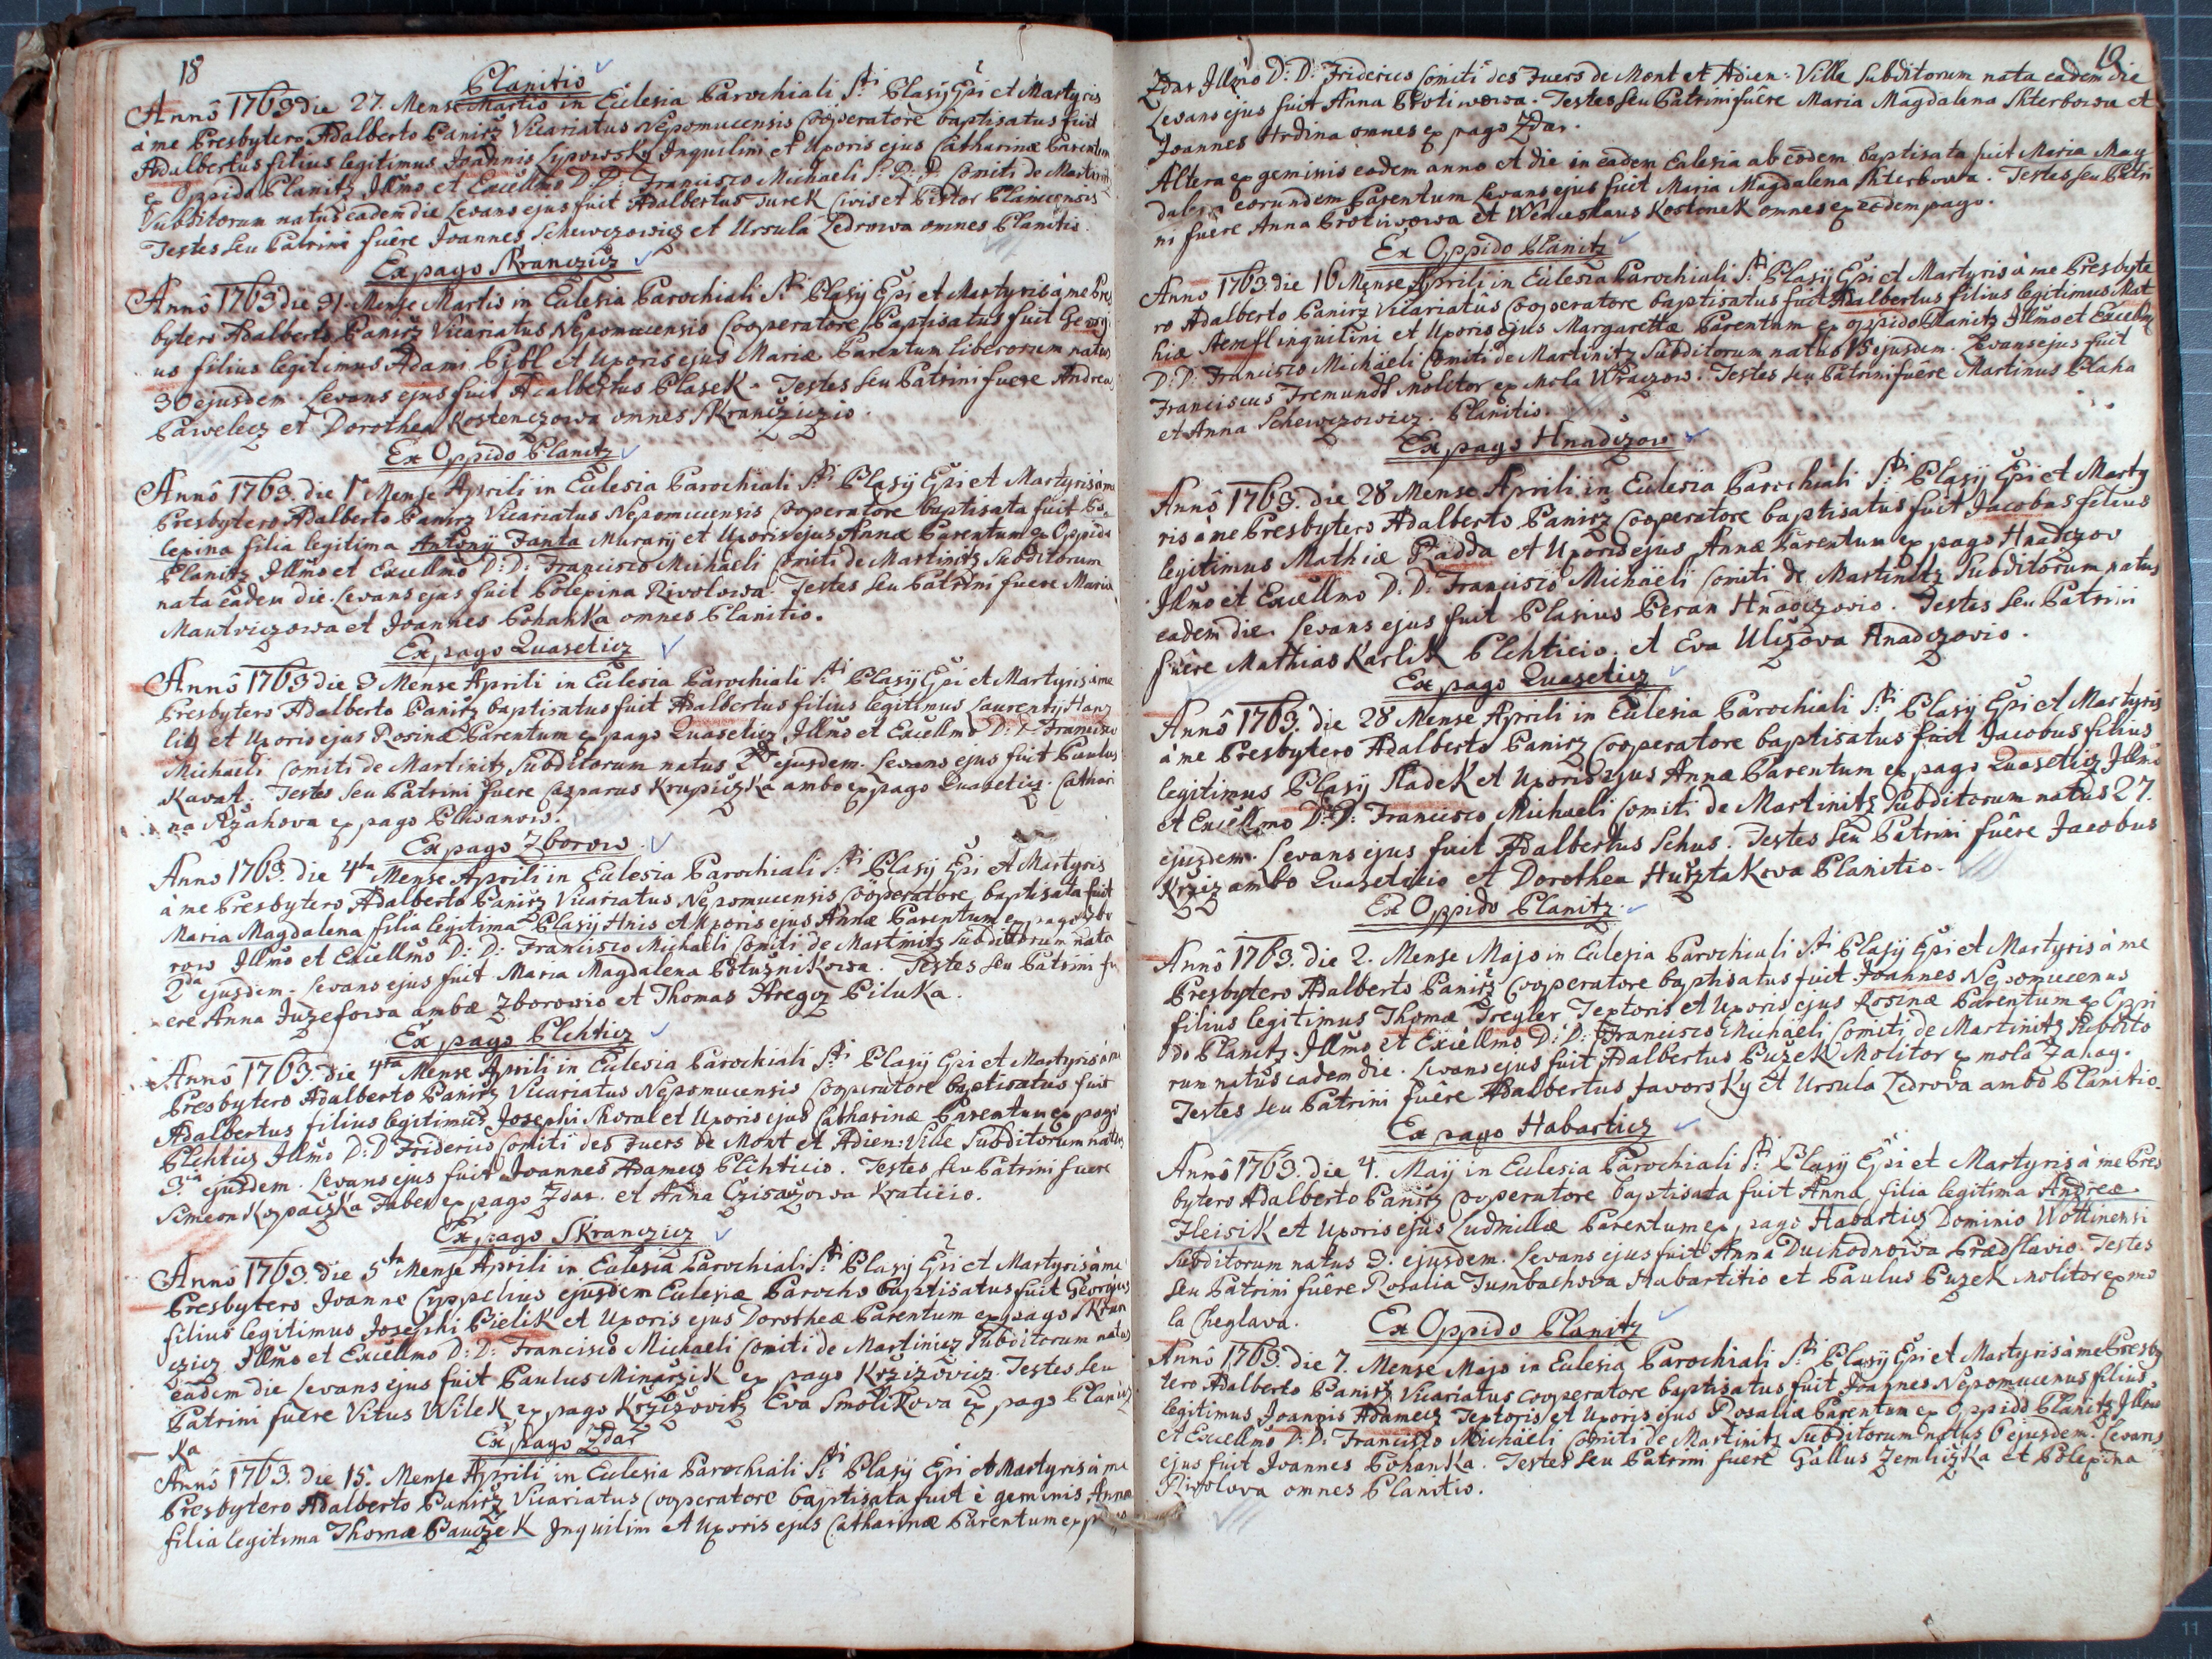 18
Planitio
Annô 1763 die 27. Mense Martio in Ecclesia Parochiali S:ti Blasij Epi et Martyris
à me Presbytero Adalberto Panirz Vicariatus Nepomucensis Cooperatore baptisatus fuit
Adalbertus filius legitimus Joannis Lypowsky Inquilini et Uxoris ejus Catharinæ Parentum
ex Oppido Planitz Illmo et Excellmo D: D: Francisco Michaeli S: R: I: Comiti de Martinitz
Subditorum natus eadem die Levans ejus fuit Adalbertus Turek Civis et Pistor Planicensis
Testes seu Patrini fuêre Joannes Schewczowicz et Ursula Zedrowa omnes Planitio.
Ex pago Skranczicz
Annô 1763 die 31. Mense Martio in Ecclesia Parochiali S:ti Blasij Epi et Martyris à me Pres
bytero Adalberto Panirz Vicariatus Nepomucensis Cooperatore Baptisatus fuit Georgi
us filius legitimus Adami Pijbl et Uxoris ejus Mariæ Parentum liberorum natus
30 ejusdem. Levans ejus fuit Adalbertus Blasek. Testes seu Patrini fuere Andreas
Pawelecz et Dorothea Kostenczowa omnes Skranczizio.
Ex Oppido Planitz
Annô 1763. die 1. Mense Aprili in Ecclesia Parochiali S:ti Blasij Epi et Martyris à me
Presbytero Adalberto Panirz Vicariatus Nepomucensis Cooperatore baptisata fuit Po=
lexina filia legitima Antonij Janta Murarij et Uxoris ejus Annæ Parentum ex Oppido
Planitz Illmo et Excellmo D: D: Francisco Michaeli Comiti de Martinitz Subditorum
nata eadem die. Levans ejus fuit Polexina Riwolowa. Testes seu Patrini fuere Maria
Mantviczowa et Joannes Bohanka omnes Planitio.
Ex pago Quaseticz
Annô 1763 die 3 Mense Aprili in Ecclesia Parochiali S:ti Blasij Epi et Martyris à me
Presbytero Adalberto Panirz baptisatus fuit Adalbertus filius legitimus Laurentij Hanz
lik et Uxoris ejus Rosinæ Parentum ex pago Quaseticz Illmo et Excellmo D: D: Francisco
Michaeli Comiti de Martinitz Subditorum natus 2da ejusdem. Levans ejus fuit Paulus
Kavat. Testes seu Patrini fuere Casparus Krupiczka ambo ex pago Quaseticz. Cathari
na Rzahova ex pago
Ex pago Zborow.
Anno 1763. die 4ta Mense Aprili in Ecclesia Parochiali S:ti Blasij Epi et Martyris
à me Presbytero Adalberto Panirz Vicariatus Nepomucensis Cooperatore baptisata fuit
Maria Magdalena filia legitima Blasij Hnis et Uxoris ejus Annæ Parentum ex pago Zbo
row Illmo et Excellmo D: D: Francisco Michaeli Comiti de Martinitz Subditorum nata
2da ejusdem. Levans ejus fuit Maria Magdalena Potužnikowa. Testes seu Patrini fu
ere Anna Juzefowa ambæ Zborowio et Thomas Piluka.
Ex pago Plchticz
Annô 1763. die 4ta Mense Aprili in Ecclesia Parochiali S:ti Blasij Epi et Martyris à me
Presbytero Adalberto Panirz Vicariatus Nepomucensis Cooperatore baptisatus fuit
Adalbertus filius legitimus Josephi Koral et Uxoris ejus Catharinæ Parentum ex pago
Plchticz Illmo D: D Friderico Comiti des Fuers de Mont et Adien: Ville Subditorum natus
3:a ejusdem. Levans ejus fuit Joannes Adamecz Plchticio. Testes seu Patrini fuere
Simeon Kopaczka Faber ex pago Zdar. et Anna Czisazowa Kraticio.
Ex pago Skranczicz
Annô 1763. die 5ta Mense Aprili in Ecclesia Parochiali S:ti Blasij Epi et Martyris à me
Presbytero Joanne Cyppelius ejusdem Ecclesiæ Parocho Baptisatus fuit Georgius
filius legitimus Josephi Bielik et Uxoris ejus Dorotheæ Parentum ex pago Skran
czicz Illmo et Excellmo D: D: Francisco Michaeli Comiti de Martinicz Subditorum natus
eadem die Levans ejus fuit Paulus Minarzik ex pago Kržižovicz Testes seu
Patrini fuere Vitus Wilek ex pago Kržižovitz Eva Smolikova ex pago Planicz
ka
Ex pago Zdar
Annô 1763. die 15. Mense Aprili in Ecclesia Parochiali S:ti Blasij Epi et Martyris à me
Presbytero Adalberto Panirz Vicariatus Cooperatore baptisata fuit è geminis Anna
filia legitima Thomæ Pauczek Inquilini et Uxoris ejus Catharinæ Parentum ex pago
19
Zdar Illmo D: D: Friderico Comiti des Fuers de Mont et Adien: Ville Subditorum nata eadem die
Levans ejus fuit Anna Protiwowa. Testes seu Patrini fuêre Maria Magdalena Skterbowa et
Joannes Hrdina omnes ex pago Zdar.
Altera ex geminis eodem anno et die in eadem Ecclesia ab eodem baptisata fuit Maria Mag
dalena eorundem Parentum Levans ejus fuit Maria Magdalena Skterbowa. Testes seu Patri
ni fuêre Anna Protiwowa et Wenceslaus Kostonek omnes ex eodem pago.
Ex Oppido Planitz
Anno 1763. die 16 Mense Aprili in Ecclesia Parochiali S:ti Blasij Epi et Martyris à me Presbyte
ro Adalberto Panirz Vicariatûs Cooperatore baptisatus fuit Adalbertus filius legitimus Mat
hiæ Stemfl inquilini et Uxoris ejus Margarettæ Parentum ex oppido Planitz Illmo et Excellmo
D: D: Francisco Michaëli Comiti de Martinitz Subditorum natus 15 ejusdem. Levans ejus fuit
Franciscus Fremundt Molitor ex Mola Wraczow. Testes seu Patrini fuere Martinus Blaha
et Anna Schewczowicz. Planitio.
Ex pago Hnadczow
Annô 1763. die 28 Mense Aprili in Ecclesia Parochiali S:ti Blasij Epi et Marty
ris à me Presbytero Adalberto Panirz Cooperatore baptisatus fuit Jacobus filius
legitimus Mathiæ Radda et Uxoris ejus Annæ Parentum ex pago Hnadczow
Illmo et Excellmo D: D: Francisco Michaëli Comiti de Martinitz Subditorum natus
eadem die. Levans ejus fuit Blasius Beran Hnadczovio. Testes seu Patrini
fuêre Mathias Karlik Plchticio. et Eva Ulczova Hnadczovio.
Ex pago Quaseticz
Annô 1763. die 28 Mense Aprili in Ecclesia Parochiali S:ti Blasij Epi et Martyris
à me Presbytero Adalberto Panirz Cooperatore baptisatus fuit Jacobus filius
legitimus Blasij Sladek et Uxoris ejus Annæ Parentum ex pago Quaseticz Illmo
et Excellmo D: D: Francisco Michaeli Comiti de Martinitz Subditorum natus 27.
ejusdem. Levans ejus fuit Adalbertus Schus. Testes seu Patrini fuêre Jacobus
Kržiz ambo Quaseticio et Dorothea Husztakova Planitio.
Ex Oppido Planitz.
Annô 1763. die 2. Mense Majo in Ecclesia Parochiali S:ti Blasij Epi et Martyris à me
Presbytero Adalberto Panirz Cooperatore baptisatus fuit Joannes Nepomucenus
filius legitimus Thomæ Tregler Textoris et Uxoris ejus Rosinæ Parentum ex Oppi
do Planitz Illmo et Excellmo D: D: Francisco Michaëli Comiti de Martinitz Subdito
rum natus eadem die. Levans ejus fuit Adalbertus Puzek Molitor ex mola Zahay.
Testes seu Patrini fuêre Adalbertus Javorsky et Ursula Zedrova ambo Planitio.
Ex pago Habarticz
Annô 1763. die 4. Maij in Ecclesia Parochiali S:ti Blasij Epi et Martyris à me Pres
bytero Adalberto Panirz Cooperatore baptisata fuit Anna filia legitima Andreæ
Fleisik et Uxoris ejus Ludmillæ Parentum ex pago Habarticz Dominio Wottinensi
Subditorum natus 3. ejusdem. Levans ejus fuit Anna Duchodnowa Prædslavio. Testes
seu Patrini fuêre Rosalia Tumbachova Habartitio et Paulus Puzek Molitor ex mo
la Cheglava.
Ex Oppido Planitz
Annô 1763. die 7. Mense Majo in Ecclesia Parochiali S:ti Blasij Epi et Martyris à me Presby
tero Adalberto Panirz Vicariatus Cooperatore baptisatus fuit Joannes Nepomucenus filius
legitimus Joannis Adamecz Textoris et Uxoris ejus Rosaliæ Parentum ex Oppido Planitz Illmo
et Excellmo D: D: Francisco Michaëli Comiti de Martinitz Subditorum natus 6 ejusdem. Levans
ejus fuit Joannes Bohanka. Testes seu Patrini fuere Gallus Zemliczka et Polexina
Riwolova omnes Planitio.
11